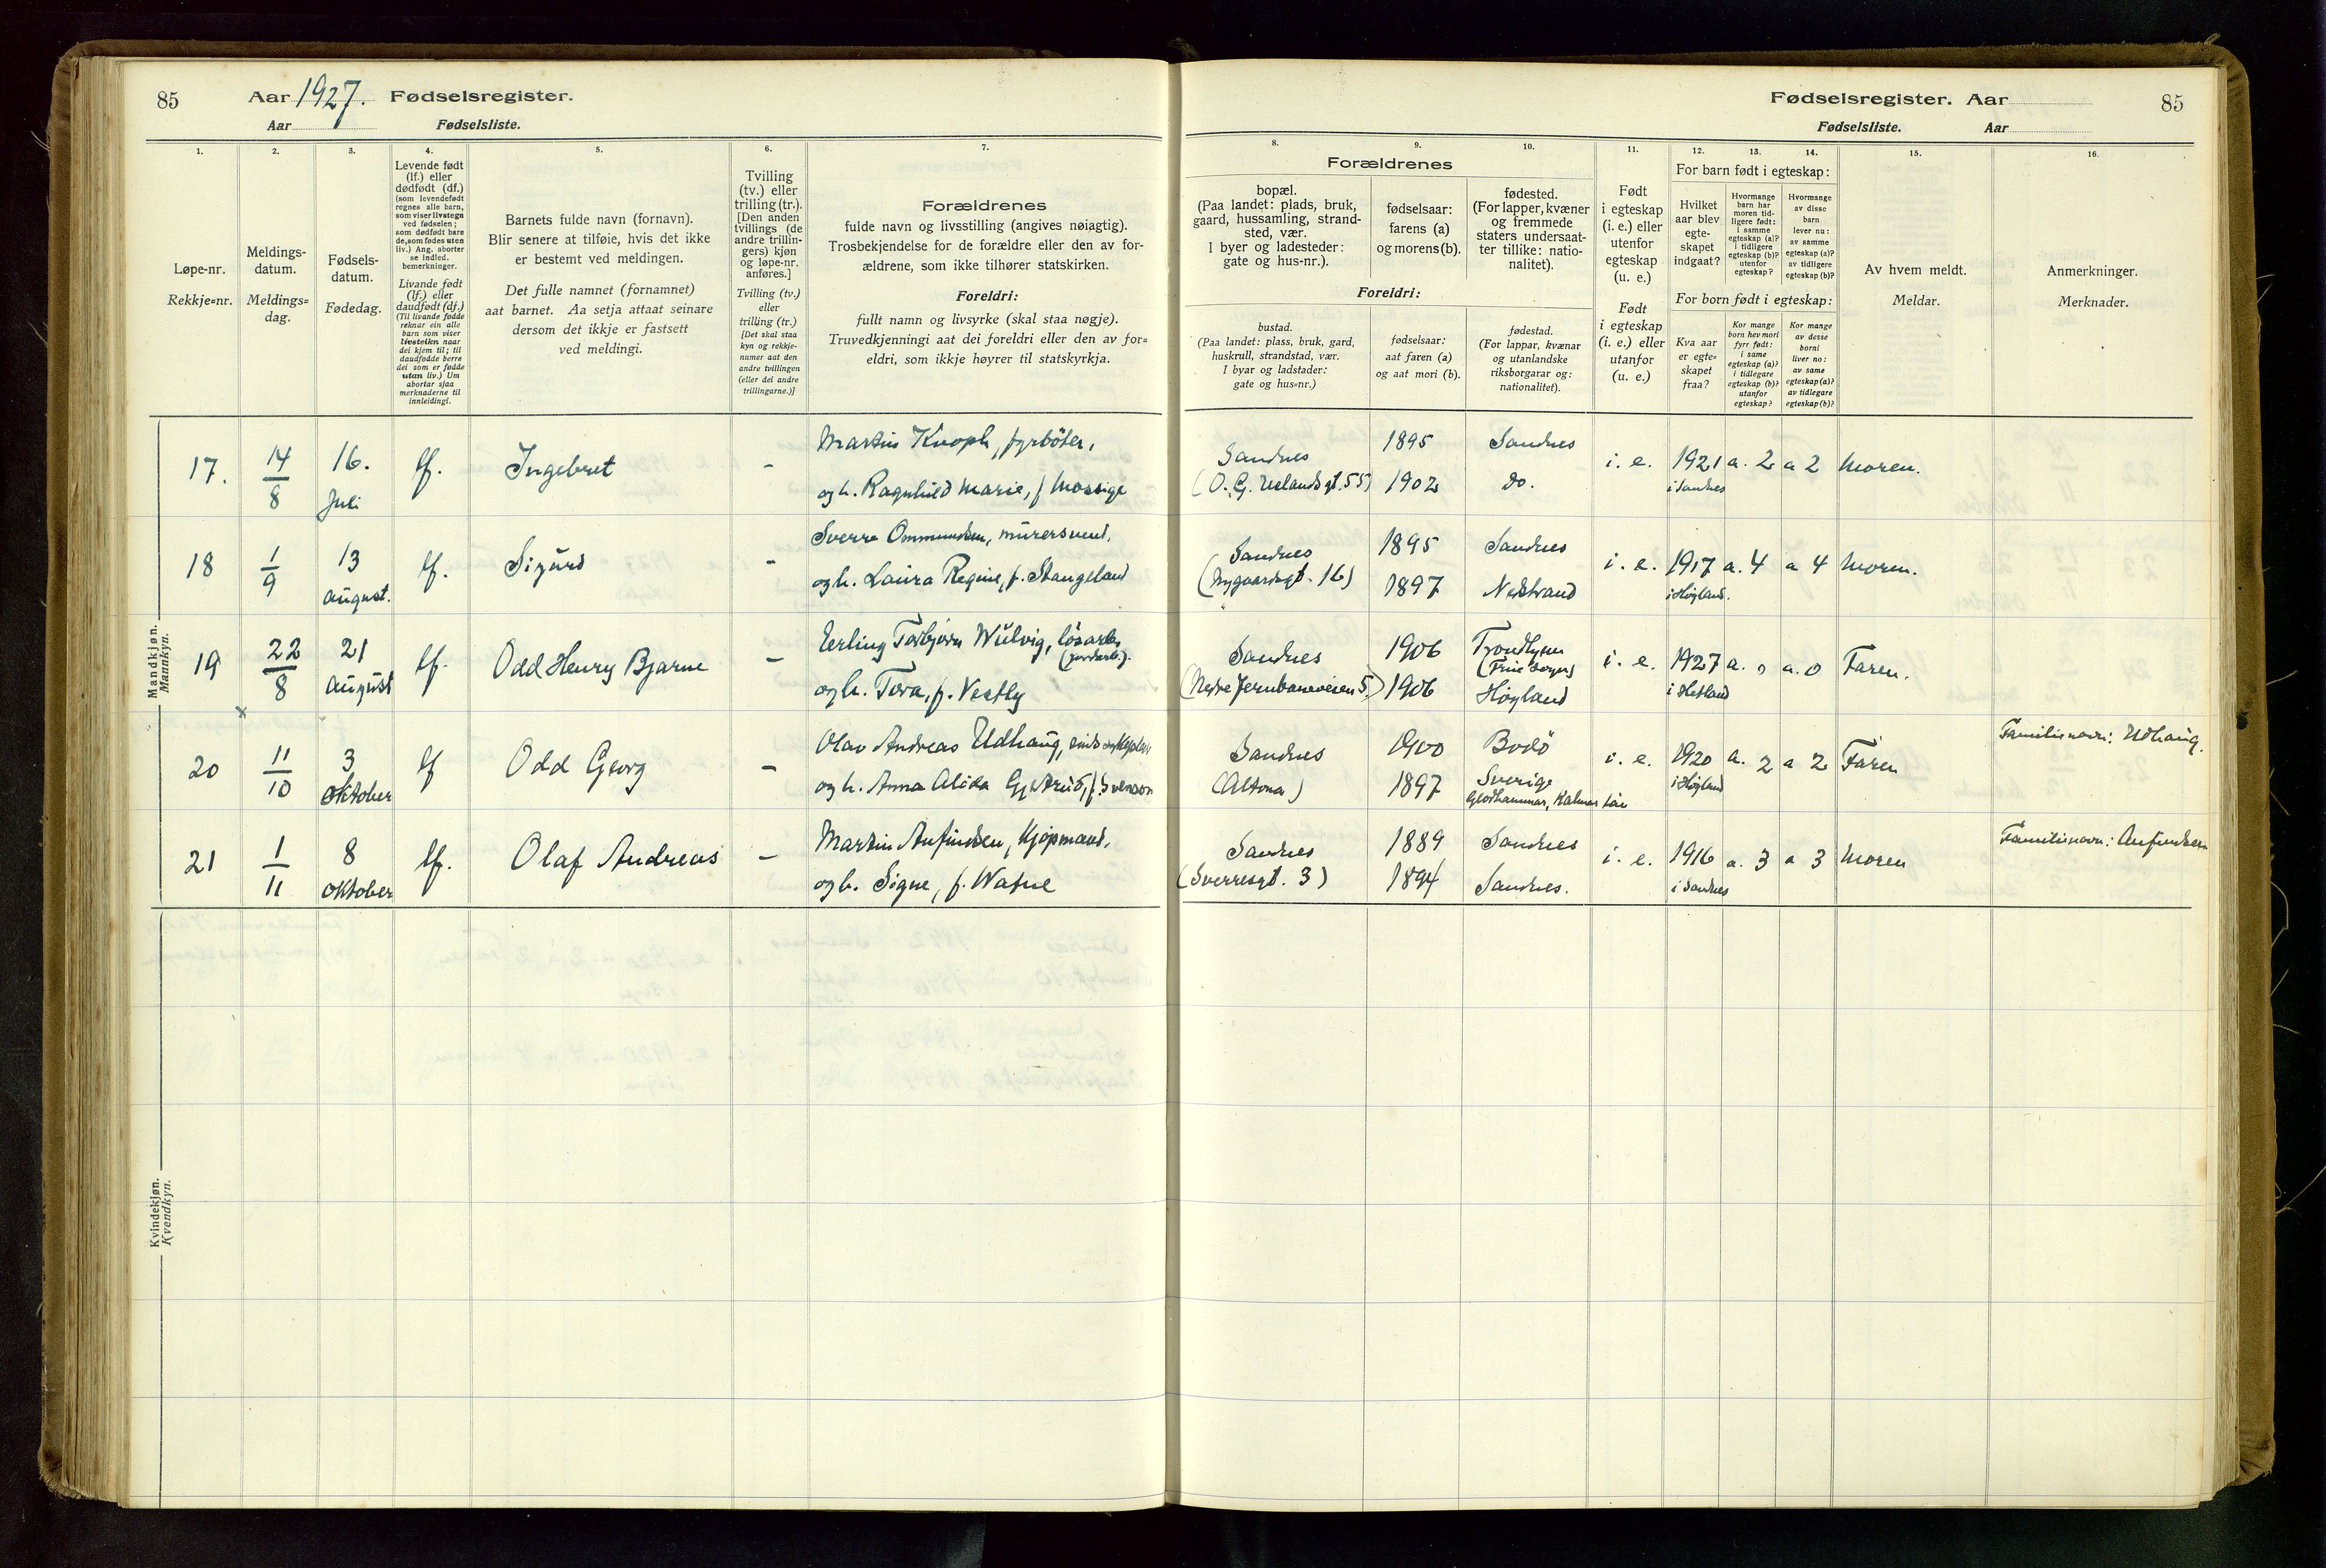 85
Aar 1927. Fødselsregister.
Aar Fødselsliste.
1.
2.
3.
4.
5.
6.
7.
Løpe-nr.
Rekkje=nr.
Meldings-
datum.
Meldings=
dag.
Fødsels-
datum.
Fødedag.
Levende født
(lf.) eller
dødfødt (df.)
(som levendefødt
regnes alle barn,
som viser livstegn
ved fødselen;
som dødfødt bare
de, som fødes uten
liv.) Ang. aborter
se indled.
bemerkninger.
Livande født
(lf.) eller
daudfødt (df.)
(Til livande fødde
reknar ein alle
barn som viser
livsteikn naar
dei kjem til; til
daudfødde berre
dei som er fødde
utan liv.) Um
abortar sjaa
merknaderne til
innleidingi.
Barnets fulde navn (fornavn).
Blir senere at tilføie, hvis det ikke
er bestemt ved meldingen.
Det fulle namnet (fornamnet)
aat barnet. Aa setja attaat seinare
dersom det ikkje er fastsett
ved meldingi.
Tvilling
(tv.) eller
trilling (tr.).
[Den anden
tvillings (de
andre trillin-
gers) kjøn
og løpe-nr.
anføres.]
Tvilling (tv.)
eller
trilling (tr.)
[Det skal staa
kyn og rekkje-
numer aat den
andre tvillingen
(eller dei andre
trillingarne.)]
Forældrenes
fulde navn og livsstilling (angives nøiagtig).
Trosbekjendelse for de forældre eller den av for-
ældrene, som ikke tilhører statskirken.
Foreldri:
fullt namn og livsyrke (skal staa nøgje).
Truvedkjenningi aat dei foreldri eller den av for=
eldri, som ikkje høyrer til statskyrkja.
Mandkjøn.
Mannkyn.
17.
14
8
16.
Juli
lf.
Ingebret
–
Martin Knoph, fyrbøter,
og h. Ragnhild Marie, f. Mossige
18
1
9
13
august.
lf.
Sigurd
–
Sverre Ommundsen, murersvend,
og h. Laura Regine, f. Stangeland
19
22
8
21
august
lf.
Odd Henry Bjarne
–
Erling Torbjørn Wulvig, løsarb.
(jordarb.).
og h. Tora, f. Vestly
x
20
11
10
3
oktober
lf
Odd Georg
–
Olav Andreas Udhaug,
og h. Anna Alida Gjertrud, f. Svenson
21
1
11
8
oktober
lf.
Olaf Andreas
–
Martin Anfindsen, kjøpmand,
og h. Signe, f. Watne
Kvindekjøn.
Kvendkyn.
Fødselsregister. Aar
85
Fødselsliste. Aar
8.
9.
10.
11.
12.
13.
14.
15.
16.
Forældrenes
bopæl.
(Paa landet: plads, bruk,
gaard, hussamling, strand-
sted, vær.
I byer og ladesteder:
gate og hus-nr.).
fødselsaar:
farens (a)
og morens (b).
fødested.
(For lapper, kvæner
og fremmede
staters undersaat-
ter tillike: natio-
nalitet).
Foreldri:
bustad.
(Paa landet: plass, bruk, gard,
huskrull, strandstad, vær.
I byar og ladstader:
gate og hus=nr.)
fødselsaar:
aat faren (a)
og aat mori (b).
fødestad.
(For lappar, kvænar
og utanlandske
riksborgarar og:
nationalitet).
Født
i egteskap
(i. e.) eller
utenfor
egteskap
(u. e.)
Født
i egteskap
(i. e.) eller
utanfor
(u. e.)
For barn født i egteskap:
Hvilket
aar blev
egte-
skapet
indgaat?
Hvormange
barn har
moren tid-
ligere født:
i samme
egteskap (a)?
i tidligere
egteskap (b)?
utenfor
egteskap?
Hvormange
av disse
barn
lever nu:
av samme
egteskap (a)?
av tidligere
egteskap (b)?
For born født i egteskap:
Kva aar
er egte=
skapet
fraa?
Kor mange
born hev mori
fyrr født:
i same
egteskap (a)?
i tidlegare
egteskap (b)?
utanfor
egteskap?
Kor mange
av desse
borni
liver no:
av same
egteskap (a)?
av tidlegare
egteskap (b)?
Av hvem meldt.
Meldar.
Anmerkninger.
Merknader.
Sandnes
(O. G. Uelandsgt. 55)
1895
1902
Sandnes
do.
i. e.
1921
i Sandnes
a. 2
a 2
Moren.
Sandnes
(Nygaardsgt. 16)
1895
1897
Sandnes
Nedstrand
i. e.
1917
i Høyland.
a. 4
a 4
Moren.
Sandnes
(Nedre Jernbaneveien 5.)
1906
1906
Trondhjem
Høyland
i. e.
1927
i Hetland
a. 0
a. 0
Faren.
Sandnes
(Altona)
1900
1897
Bodø
Sverige
Kalmar län
i. e.
1920
i Høyland
a. 2
a 2
Faren
Familienavn: Udhaug.
Sandnes
(Sverresgt. 3)
1889
1894
Sandnes
Sandnes.
i. e.
1916
i Sandnes
a. 3
a 3
Moren
Familienavn: Anfindsen